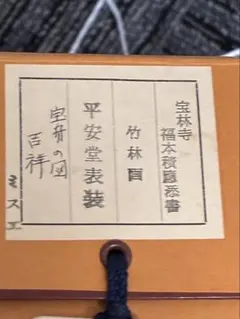 宝林寺
福本積應添書
竹林画
平安堂表装
宝舟の図
吉祥
ミスエ